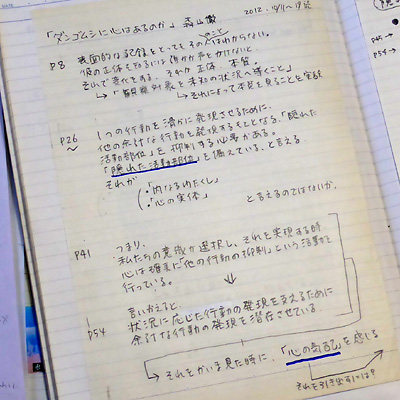 「ダンゴムシに心はあるのか」 森山徹 2012.
のこと
P8 表面的な記録をとってもその人はわからない。
彼の正体を知るには働きかけをかけないと
それで変化をする、それが正体、本質。
→「観察対象を未知の状況へ導くこと」
→それによって本質を見ることを実験
P26 1つの行動を滑かに発現させるために、
他の余計な行動を発現するもととなる、「隠れた
活動部位」を抑制する必要がある。
「隠れた活動部位」を備えている、と言える
それが
・「内なるわたくし」
・「心の実体」
と言えるのではないか。
P41 つまり、
私たちの意識が選択し、それを実現する時
心は確実に「他の行動の抑制」という活動を
行っている。
言いかえると、
P54 状況に応じた行動の発現を支えるために
余計な行動の発現を潜在させている。
→それをかいま見た時に、「心の気配」を感じる
それを引き出すには?
P45
P54